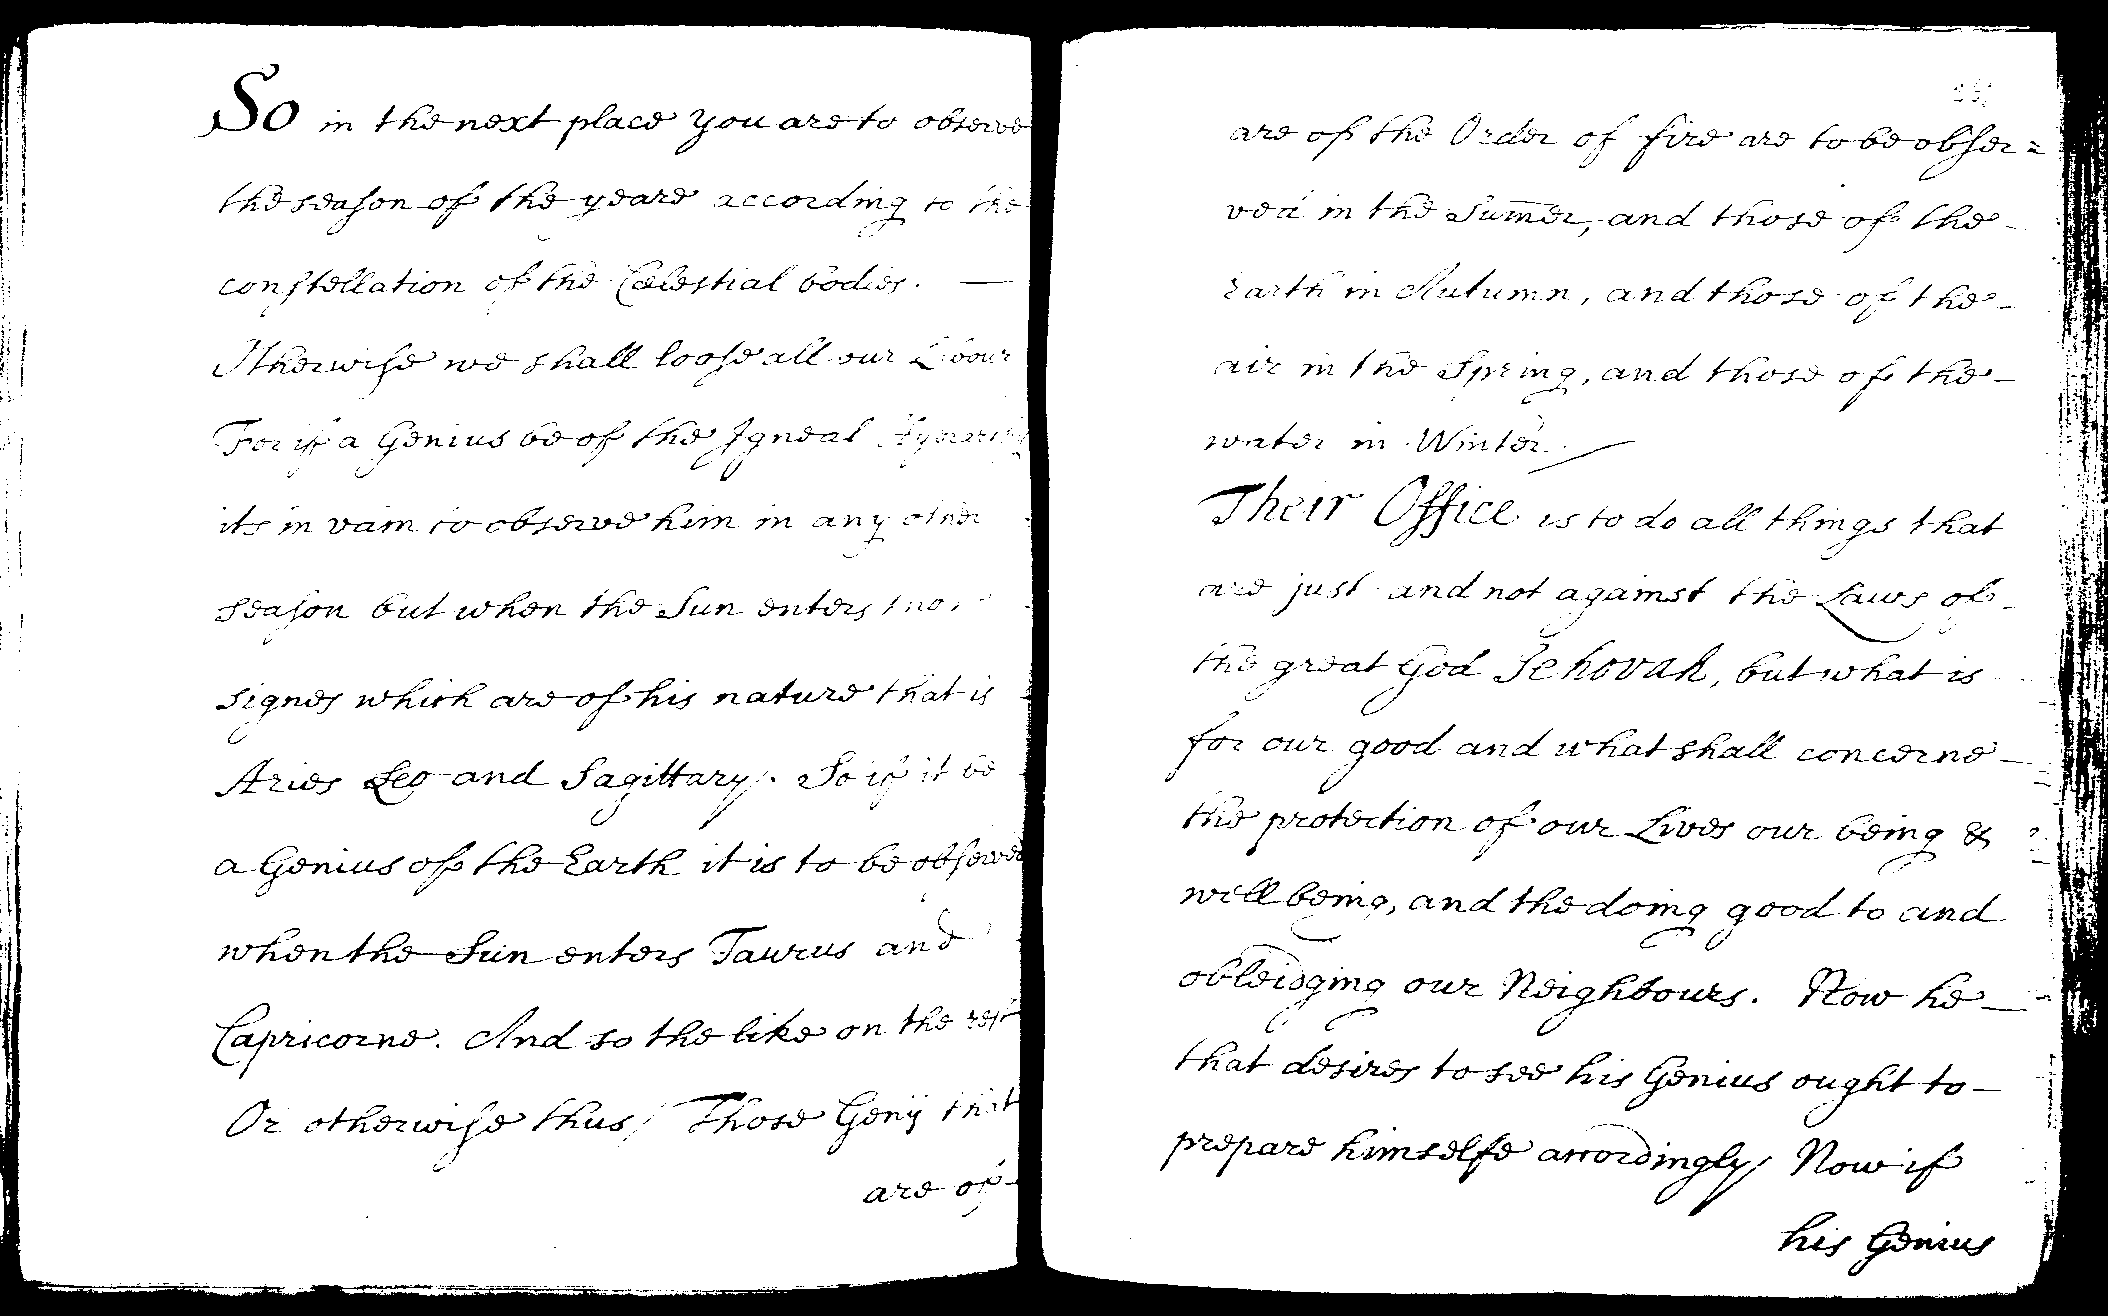 So in the next place you are to observe
the season of the yeare according to the
constellation of the Cœlestial bodies. —
Otherwise we shall loose all our Labour
For if a Genius be of the Igneal
its in vain to observe him in any other
season but when the Sun enters
signes which are of his nature that is
Aries Leo and Sagittary. So if it be
a Genius of the Earth it is to be observed
when the Sun enters Taurus and
Capricorne. And so the like on the rest
Or otherwise thus/ Those Genij that
are of
are of the Order of fire are to be obser=
ved in the Sum̄er, and those of the
Earth in Autumn, and those of the
air in the Spring, and those of the
water in Winter.
Their Office is to do all things that
are just and not against the Laws of
the great God Jehovah, but what is
for our good and what shall concerne
the protection of our Lives our being &
well being, and the doing good to and
obleidging our Neighbours. Now he
that desires to see his Genius ought to
prepare himselfe accordingly/ Now if
his Genius